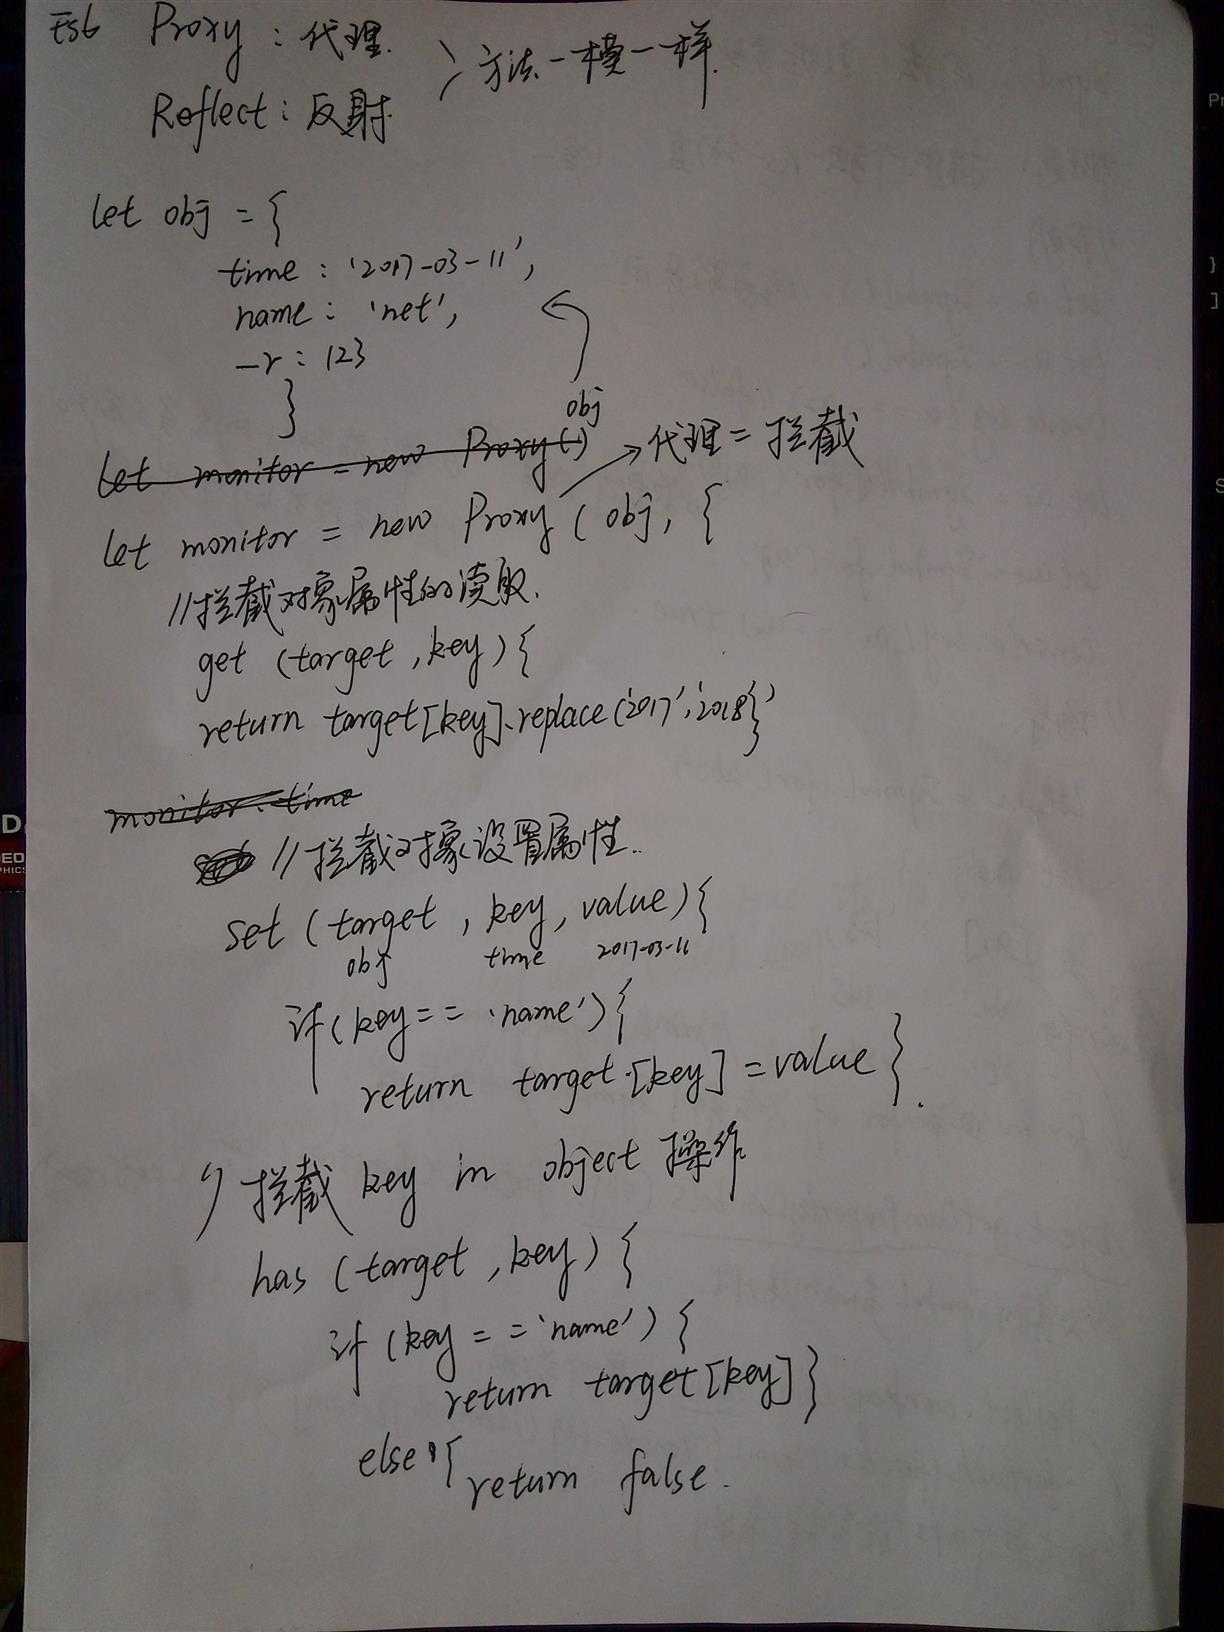 ES6 Proxy : 代理.
Reflect : 反射.
} 方法一模一样.
let obj = {
time : '2017-03-11',
name : 'net',
_r : 123
}
obj
let monitor = new Proxy()
代理 = 拦截
let monitor = new Proxy ( obj, {
//拦截对象属性的读取.
get (target , key) {
return target[key].replace('2017','2018}'
monitor.time
//拦截对象设置属性..
set ( target , key, value) {
obj time 2017-03-11
if (key == 'name') {
return target.[key] = value }.
// 拦截 key in object 操作
has (target , key) {
if (key == 'name') {
return target[key] }
else {
return false.